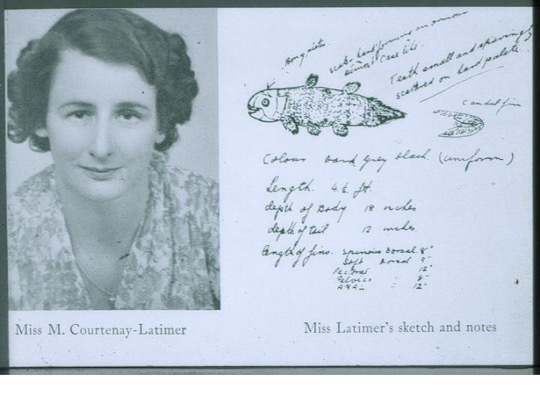 Bony plates
scales hard forming an armour
almost case like.
Teeth small and sparingly
scattered on hard palate.
Caudal fin
Colour hard grey black. (uniform)
Length. 4½ ft.
depth of Body 18 inches
depth of tail 12 inches
length of fins. Spinous Dorsal 8"
Soft Dorsal
Pectoral 12"
Pelvics 8"
Anal 12"
Miss M. Courtenay-Latimer
Miss Latimer's sketch and notes